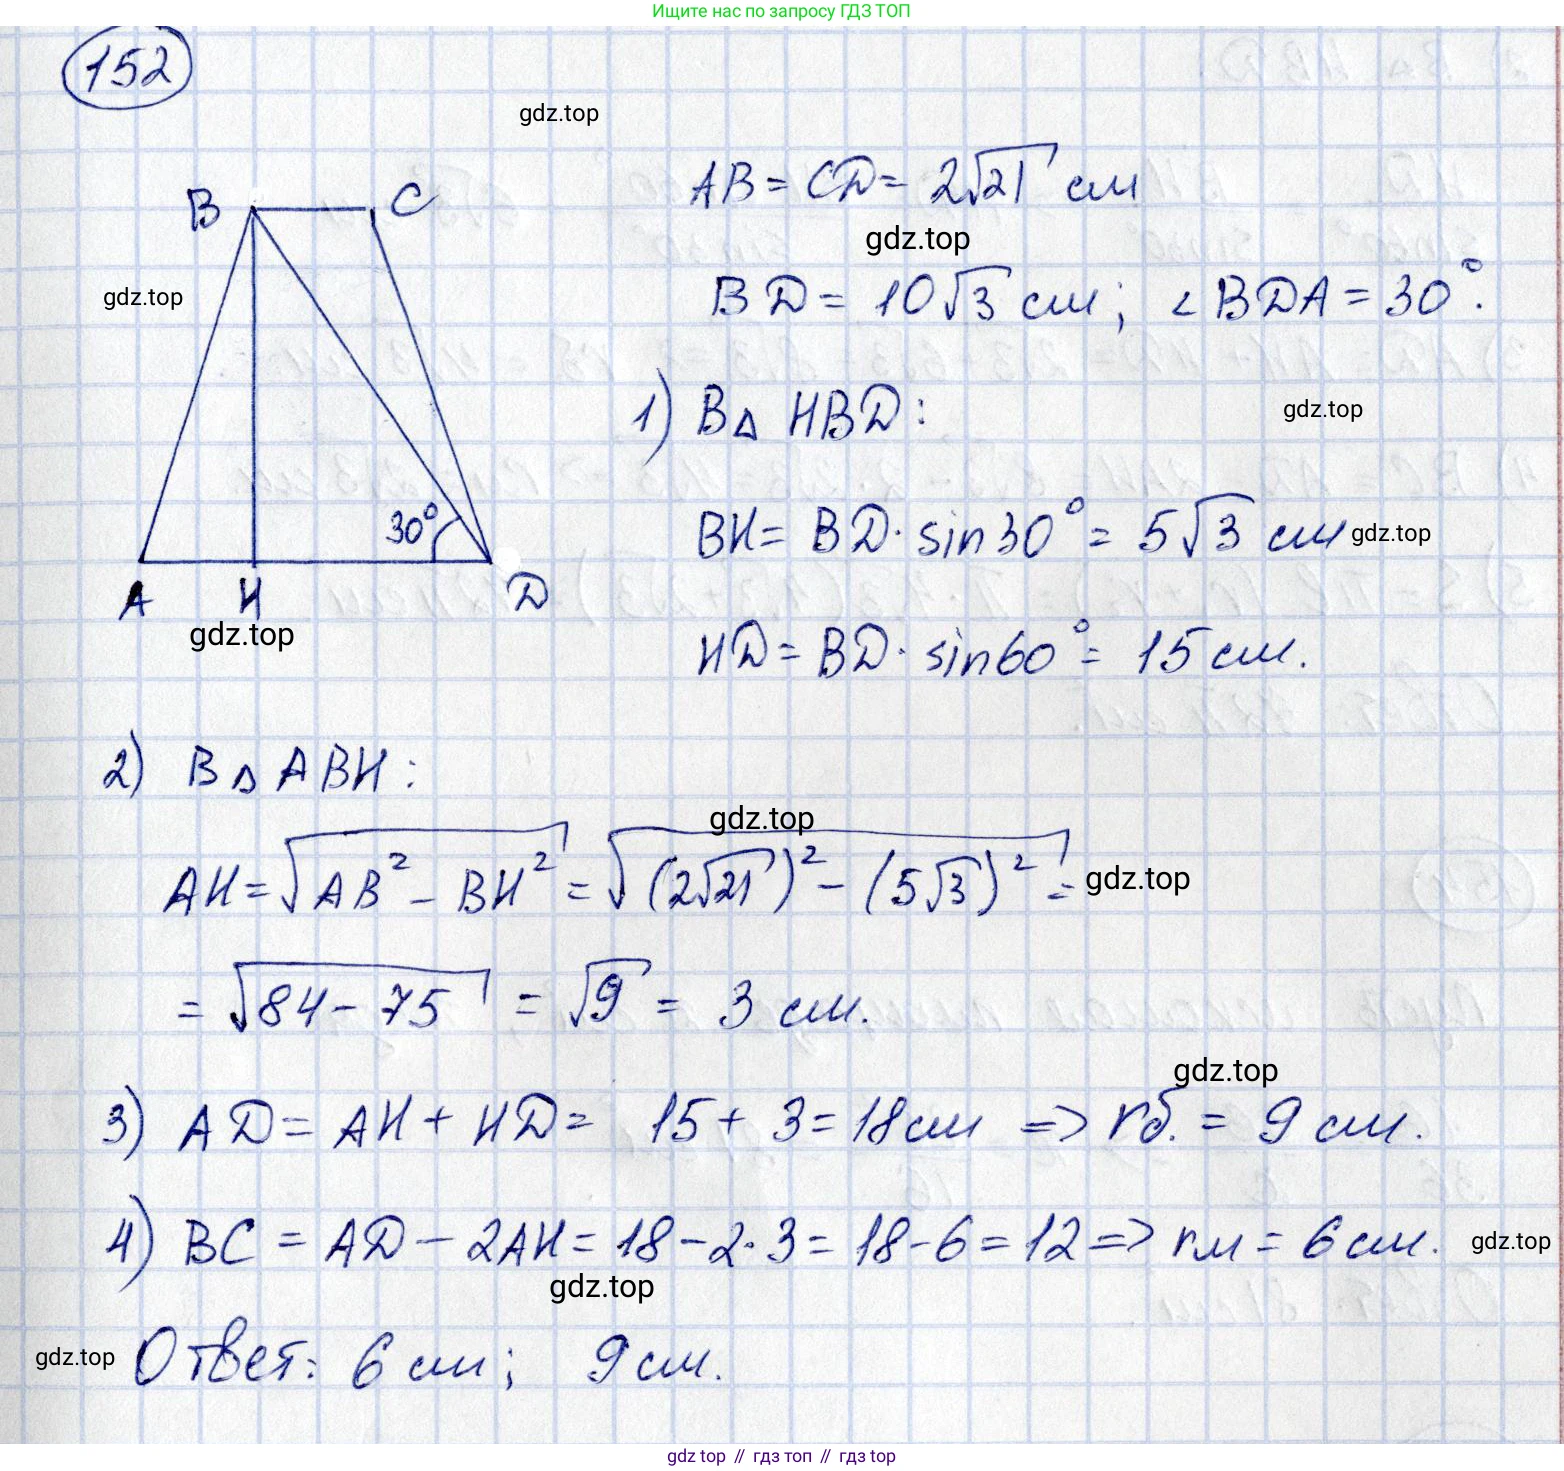 Ищите нас по запросу ГДЗ ТОП
152
gdz.top
AB = CD = 2√21 см
B C
gdz.top
gdz.top
BD = 10√3 см; ∠BDA = 30°.
1) В △ HBD:
gdz.top
30°
BH = BD · sin30° = 5√3 см
gdz.top
A H D
gdz.top
HD = BD · sin60° = 15 см.
2) В △ ABH:
gdz.top
AH = √(AB² - BH²) = √((2√21)² - (5√3)²) =
gdz.top
= √(84 - 75) = √9 = 3 см.
gdz.top
3) AD = AH + HD = 15 + 3 = 18 см => rб. = 9 см.
4) BC = AD - 2AH = 18 - 2·3 = 18 - 6 = 12 => rм = 6 см.
gdz.top
gdz.top
gdz.top
Ответ: 6 см; 9 см.
gdz top // гдз топ // гдз top